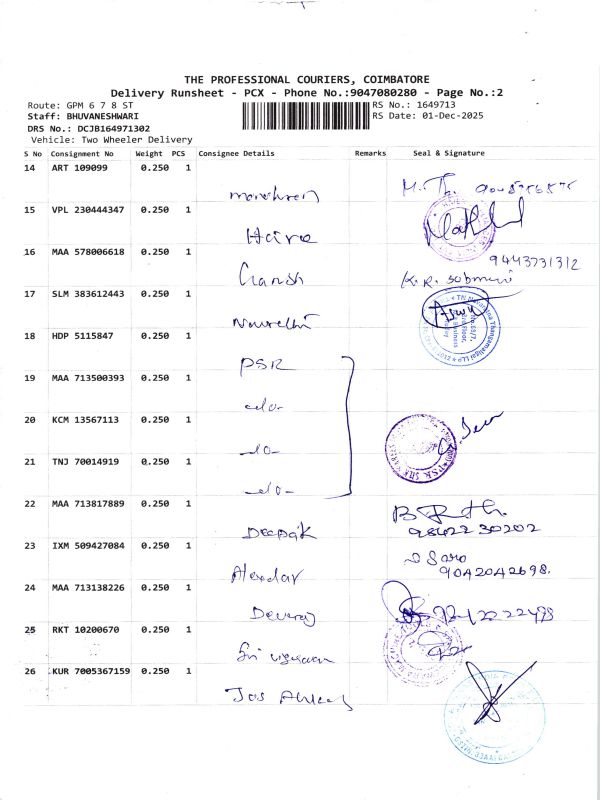 THE PROFESSIONAL COURIERS, COIMBATORE
Delivery Runsheet - PCX - Phone No.:9047080280 - Page No.:2
Route: GPM 6 7 8 ST
RS No.: 1649713
Staff: BHUVANESHWARI
RS Date: 01-Dec-2025
DRS No.: DCJB164971302
Vehicle: Two Wheeler Delivery
S No Consignment No Weight PCS Consignee Details Remarks Seal & Signature
14 ART 109099 0.250 1
15 VPL 230444347 0.250 1
Haire
16 MAA 578006618 0.250 1
9443731312
Ganesh
K.R. Submani
17 SLM 383612443 0.250 1
18 HDP 5115847 0.250 1
PSR
19 MAA 713500393 0.250 1
-do-
20 KCM 13567113 0.250 1
-do-
21 TNJ 70014919 0.250 1
-do-
22 MAA 713817889 0.250 1
Deepak
9842230202
23 IXM 509427084 0.250 1
Saro
9042042698.
24 MAA 713138226 0.250 1
Devraj
25 RKT 10200670 0.250 1
Sri
26 KUR 7005367159 0.250 1
Jos